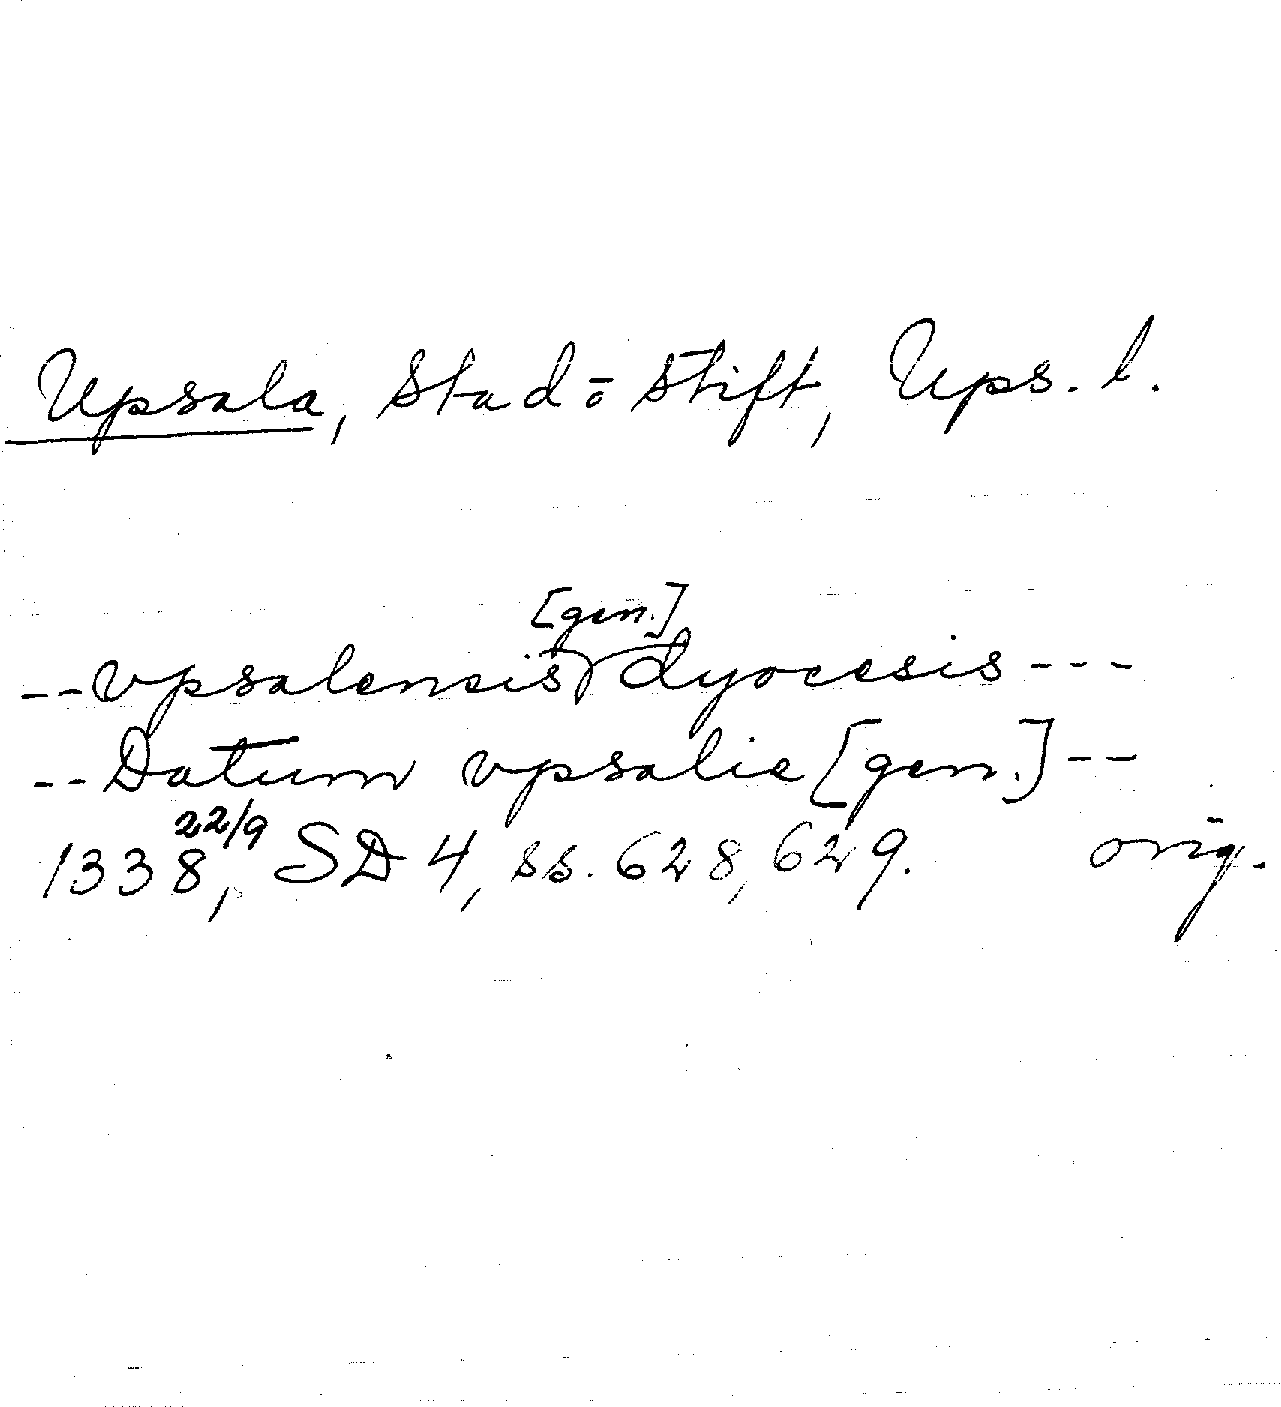 Upsala, Stad o Stift, Ups. l.
--vpsalensis [gen.] dyocesis---
--Datum vpsalie [gen.]--
1338 22/9, SD 4, ss. 628, 629. orig.